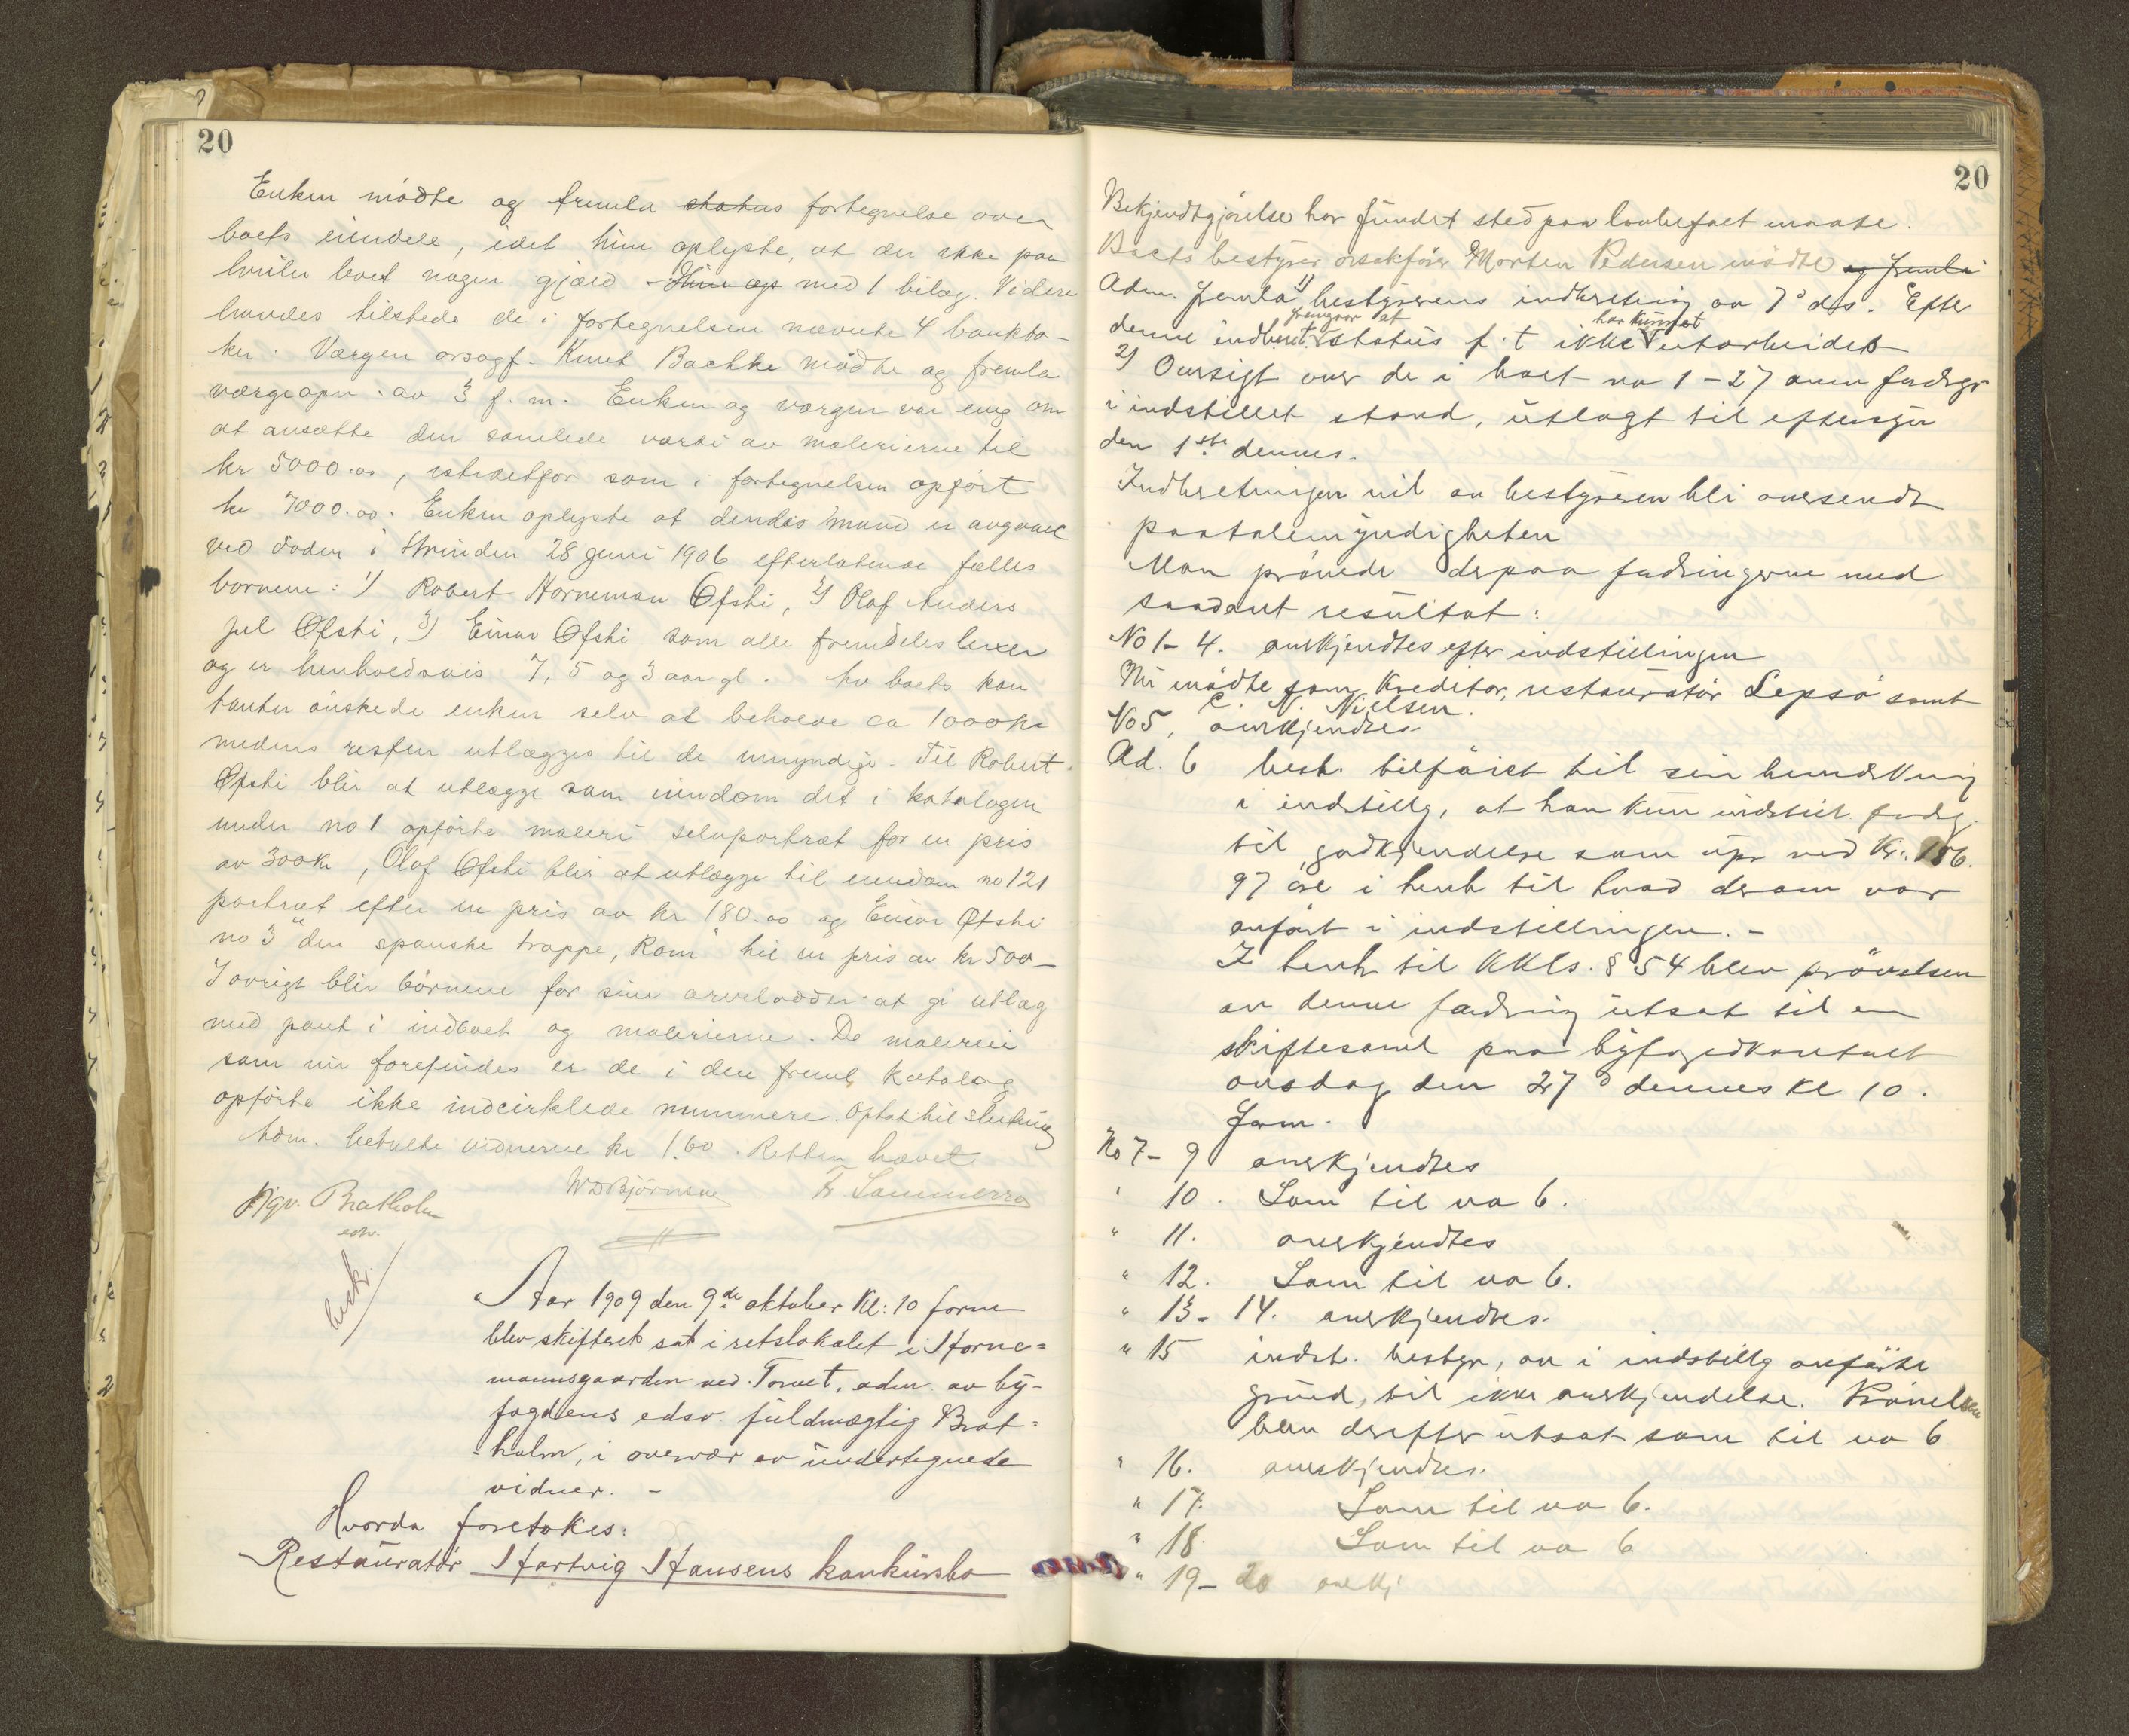 20
Enken mödte og fremla status fortegnelse over
boets eiendele, idet hun oplyste, at der ikke paa
hviler boet nogen gjæld - Hun op med 1 bilag. Videre
havdes tilstede de i fortegnelsen nævnte 4 bankbö-
ker. Værgen orsagf. Knut Bachke mødte og fremla
værgeopn. av 3 f. m. Enken og værgen var enig om
at ansætte den samlede værdi av malerierne til
kr 5000.00, istedetfor som i fortegnelsen opført
kr 7000.00. Enken oplyste at hendes mand er avgaaet
ved döden i Strinden 28 juni 1906 efterlatende fælles
børnene: 1) Robert Horneman Øfsti, 2) Olaf Anders
Juel Øfsti, 3) Einar Øfsti som alle fremdeles lever
og er henholdsvis 7, 5 og 3 aar gl. Av boets kon
tanter ønskede enken selv at beholde ca 1000 kr
medens resten utlægges til de umyndige. Til Robert
Øfsti blir at utlægge som eiendom det i katalogen
under no 1 opførte maleri selvportræt for en pris
av 300 kr, Olaf Øfsti blir at utlægge til eiendom no 121
portræt efter en pris av kr 180.00 og Einar Øfsti
no 3 "den spanske trappe, Rom" til en pris av kr 500 -
I øvrigt blir börnene for sine arvelodder at gi utlæg
med pant i indboet og malerierne. De malerier
som nu forefindes er de i den freml. katalog
opførte ikke indcirklede nummere. Optat til slutning
Adm. betalte vidnerne kr 1.60. Retten hævet
Sigv. Bratholm W D Bjørnson Fr Sommerro
edsv.
beskr.
Aar 1909 den 9de oktober Kl: 10 form
blev skifteret sat i retslokalet i Horne=
mannsgaarden ved Torvet, adm. av by-
fogdens edsv. fuldmægtig Brat=
holm, i overvær av undertegnede
vidner. -
Hvorda foretokes:
Restauratør Hartvig Hansens konkursbo
20
Bekjendtgjörelse har fundet sted paa lovbefalet maate.
Boets bestyrer orsakförer Morten Pedersen mödte og fremla
Adm. fremla 1) bestyrerens indberetning av 7d ds. Efter
fremgaar at har kunnet
denne indberet. status f. t ikke utarbeides
2) Oversigt over de i boet no 1-27 anm fordrgr
i indstillet stand, utlagt til eftersyn
den 1ste dennes.
Indberetningen vil av bestyreren bli oversendt
paatalemyndigheten
Man prövede derpaa fordringerne med
saadant resultat:
No 1- 4. anerkjendtes efter indstillingen
Nu mödte som kreditor, restauratör Lepsö samt
C. N. Nielsen.
No 5, anerkjendtes.
Ad. 6 best. tilföiet til sin bemerkning
i indstillg, at han kun indstill. fordg.
til godkjendelse som upr ved Kr. 156.
97 øre i henh til hvad derom var
anført i indstillingen. -
I henh til KKls. § 54 blev prövelsen
av denne fordring utsat til en
skiftesaml paa byfogedkontoret
onsdag den 27d dennes kl 10.
form.
No 7- 9 anerkjendtes
" 10. Som til no 6.
" 11. anerkjendtes
" 12. Som til no 6.
" 13- 14. anerkjendtes.
" 15 indst. bestyr, av i indstillg anførte
grund, til ikke anerkjendelse. Prövelsen
blev derefter utsat som til no 6
" 16. anerkjendtes.
" 17. Som til no 6.
" 18. Som til no 6
" 19- 20 anerkj